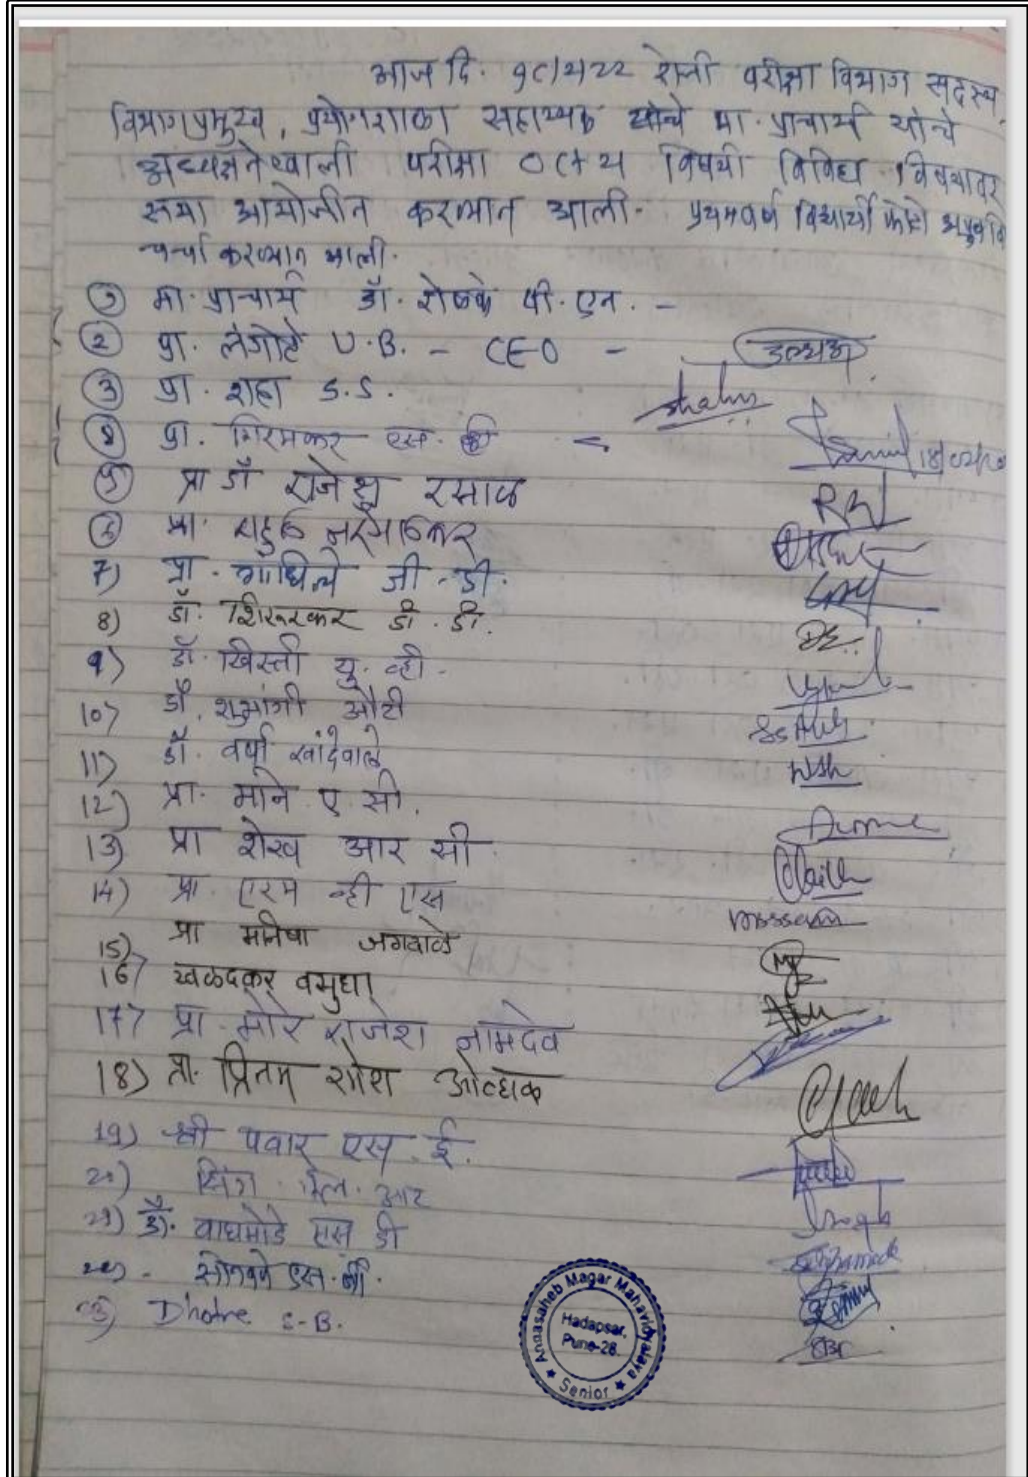 आज दि. १८/२/२२ रोजी परीक्षा विभाग सदस्य,
विभागप्रमुख, प्रयोगशाळा सहाय्यक यांचे मा. प्राचार्य यांचे
अध्यक्षतेखाली परीक्षा विषयी विविध विषयावर
सभा आयोजीत करण्यात आली. प्रथमवर्ष विद्यार्थी
चर्चा करण्यात आली.
① मा. प्राचार्य डॉ. शेळके पी. एन. -
② प्रा. लंगोटे U.B. - CEO -
③ प्रा. शहा S.S.
④ प्रा. शिरमकर एस. 18/02/20
⑤ प्रा डॉ राजेश्र रसाळ
⑥ प्रा. राहुल
7) प्रा. गाधिले जी. डी.
8) डॉ. शिरुरकर डी. डी.
9) डॉ. खिस्ती यु. व्ही.
10) डॉ. शुभांगी औटी
11) डॉ. वर्षा खांदेवाले
12) प्रा. माने ए सी.
13) प्रा शेख आर सी
14) प्रा. एरम व्ही एस
15) प्रा मनिषा जगदाळे
16) खळदकर वसुधा
17) प्रा. मोरे राजेश नामदेव
18) प्रा. प्रितम ओव्हाळ
19) श्री पवार एस. ई.
20) सिंग एल. आर
21) डॉ. वाघमोडे एस डी
22) - सोनवने एस. बी.
23) Dhotre S-B.
Annasaheb Magar Mahavidyalaya
Hadapsar,
Pune-28.
★ Senior ★